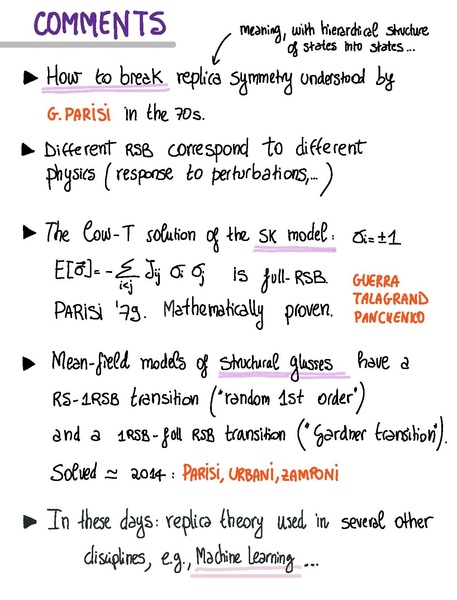 COMMENTS
meaning, with hierarchical structure
of states into states...
► How to break replica symmetry understood by
G. PARISI in the 70s.
► Different RSB correspond to different
physics (response to perturbations,...)
► The low-T solution of the SK model: σi=±1
E[σ⃗]=-∑i<j Jij σi σj is full-RSB.
PARISI '79. Mathematically proven.
GUERRA
TALAGRAND
PANCHENKO
► Mean-field models of structural glasses have a
RS-1RSB transition ("random 1st order")
and a 1RSB-full RSB transition ("Gardner transition").
Solved ≃ 2014: PARISI, URBANI, ZAMPONI
► In these days: replica theory used in several other
disciplines, e.g., Machine Learning ...